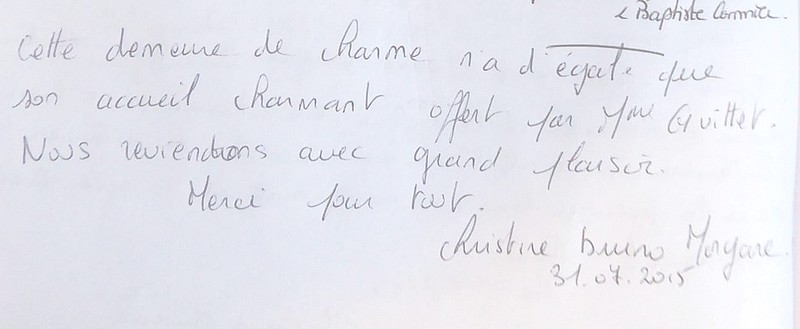 & Baptiste
Cette demeure de charme n'a d'égale que
son accueil charmant offert par Mme Quittet.
Nous reviendrons avec grand plaisir.
Merci pour tout.
Christine Bruno Morgane.
31.07.2015